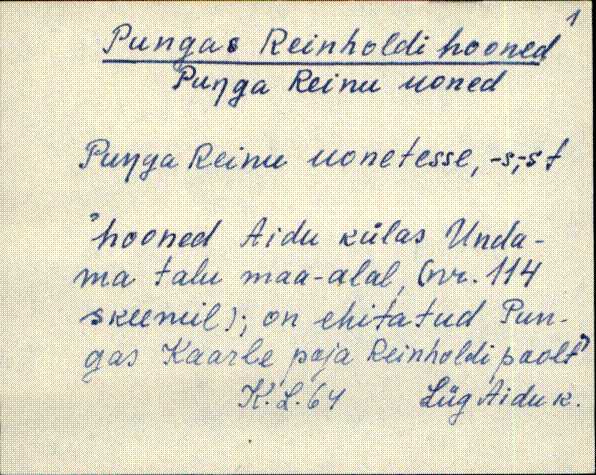 1
Pungas Reinholdi hooned
Puŋga Reinu uoned
Puŋga Reinu uonetesse, -s,-st
"hooned Aidu külas Unda-
ma talu maa-alal, (nr. 114
skeemil); on ehitatud Pun-
gas Kaarle poja Reinholdi poolt"
K.L. 64 Lüg Aidu k.